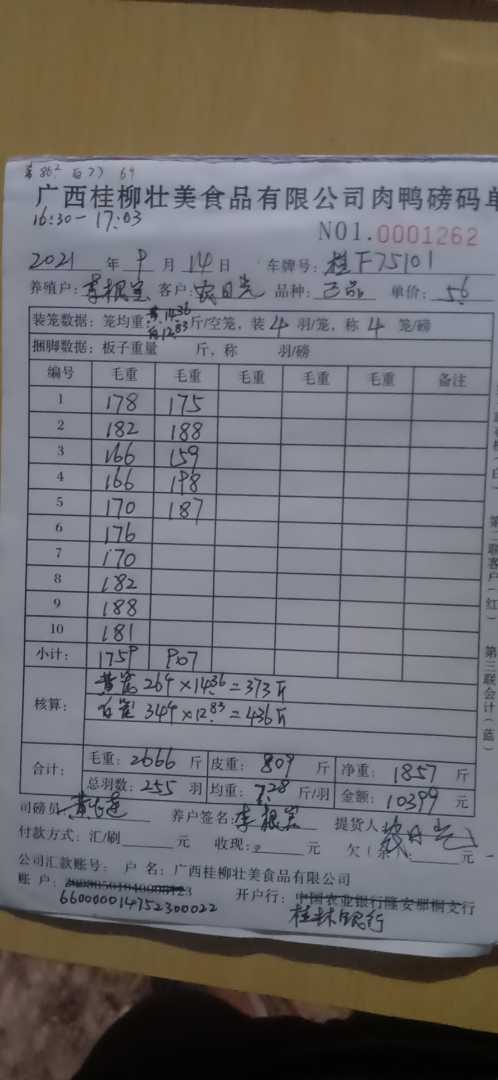 黄86² 白77 64
广西桂柳壮美食品有限公司肉鸭磅码单
16:30-17:03
NO1.0001262
2021年9月14日 车牌号:桂F75101
养殖户:李根宝 客户:农日先 品种: 单价:5.6
装笼数据:笼均重黄14.36白12.83斤/空笼,装4羽/笼,称4笼/磅
捆脚数据:板子重量 斤,称 羽/磅
编号 毛重 毛重 毛重 毛重 毛重 备注
1 178 175
2 182 188
3 166 159
4 166 198
5 170 187
6 176
7 170
8 182
9 188
10 181
小计: 1759 907
核算: 黄笼26个×14.36=373斤
白笼34个×12.83=436斤
合计: 毛重:2666斤 皮重:809斤 净重:1857斤
总羽数:255羽 均重:7.28斤/羽 金额:10399元
司磅员 养户签名:李根宝 提货人 农日先
付款方式:汇/刷 元 收现: 元 欠(条) 元
公司汇款账号: 户 名:广西桂柳壮美食品有限公司
账 户: 开户行:中国农业银行隆安那桐支行
660000014752300022 桂林银行
第二联客户(红) 第三联会计(蓝)